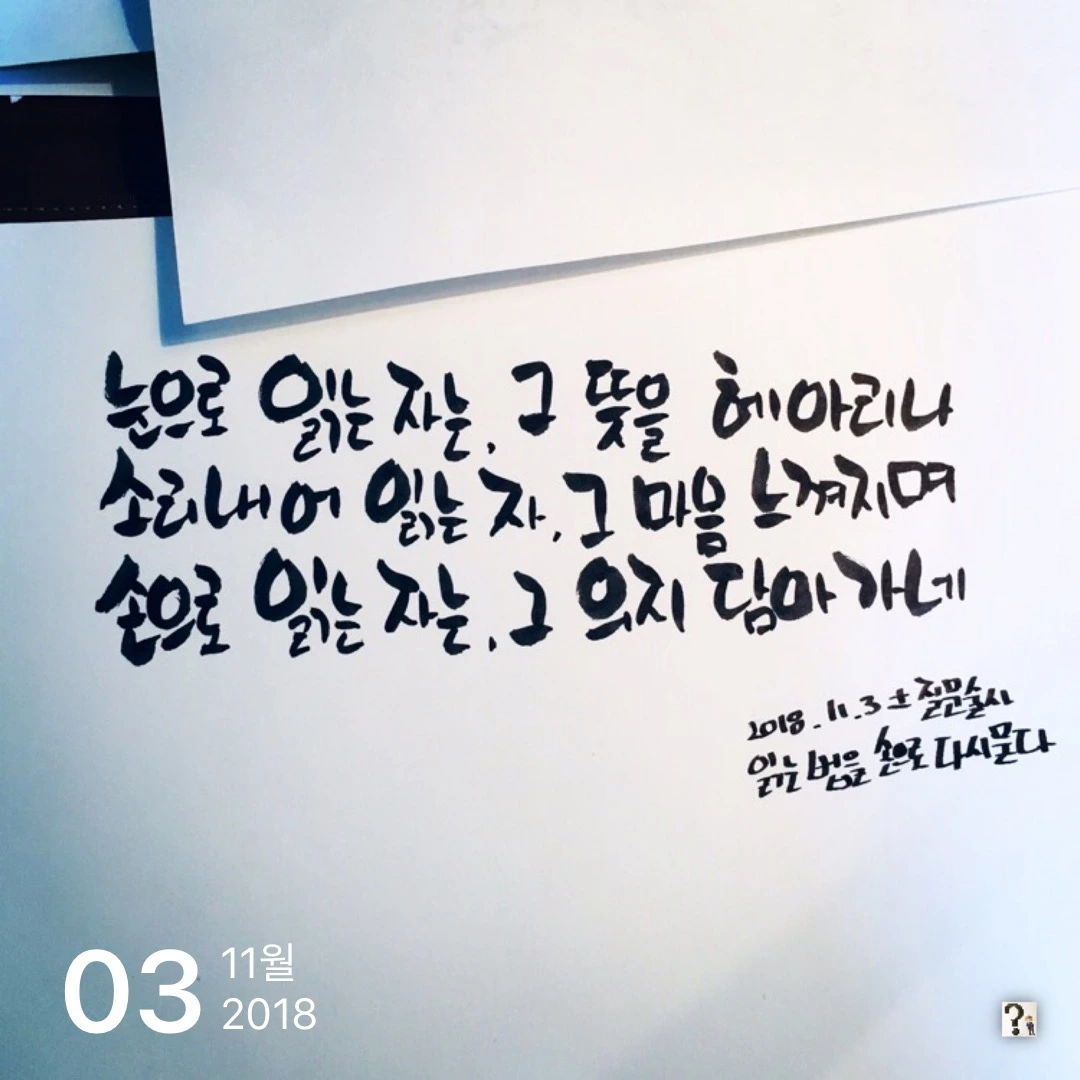 눈으로 읽는 자는, 그 뜻을 헤아리나
소리내어 읽는 자, 그 마음 느껴지며
손으로 읽는 자는, 그 의지 담아 가네
2018. 11. 3 土 질문술사
읽는 법을 손으로 다시 묻다
03
11월
2018
?